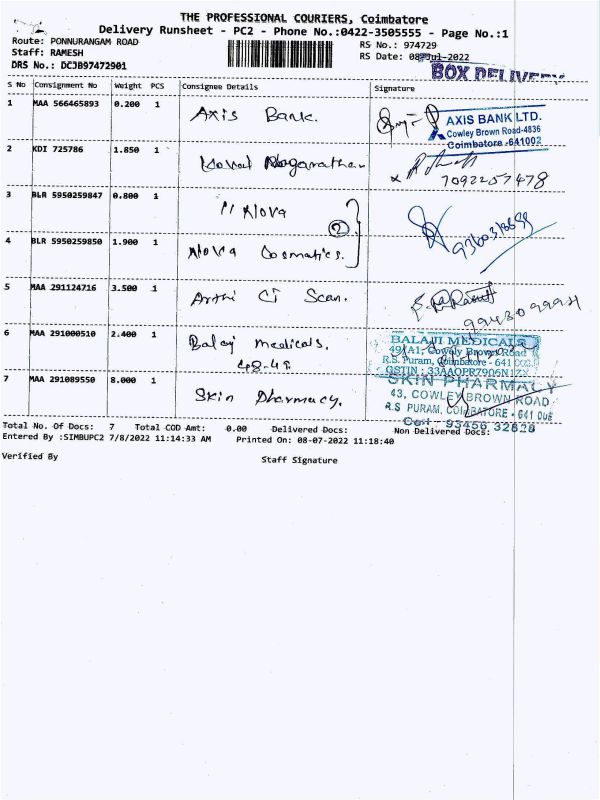 THE PROFESSIONAL COURIERS, Coimbatore
Delivery Runsheet - PC2 - Phone No.:0422-3505555 - Page No.:1
Route: PONNURANGAM ROAD
RS No.: 974729
Staff: RAMESH
RS Date: 08-Jul-2022
DRS No.: DCJB97472901
BOX DELIVERY
S No Consignment No Weight PCS Consignee Details Signature
1 MAA 566465893 0.200 1 Axis Bank.
AXIS BANK LTD.
Cowley Brown Road-4836
Coimbatore-641002
2 KDI 725786 1.850 1
7092257478
3 BLR 5950259847 0.800 1 Nova
2
4 BLR 5950259850 1.900 1 Nova Cosmatics.
5 MAA 291124716 3.500 1 Arthi CT Scan.
6 MAA 291000510 2.400 1 Balaji Medicals.
BALAJI MEDICALS
49/A1, Cowely Brown Road
R.S. Puram, Coimbatore - 641 002
GSTIN : 33AAOPR7906N1ZX
7 MAA 291089550 8.000 1 Skin Pharmacy.
SKIN PHARMACY
43, COWLEY BROWN ROAD
R.S PURAM, COIMBATORE - 641 002
Cell : 93456 32828
Total No. Of Docs: 7 Total COD Amt: 0.00 Delivered Docs: Non Delivered Docs:
Entered By :SIMBUPC2 7/8/2022 11:14:33 AM Printed On: 08-07-2022 11:18:40
Verified By
Staff Signature